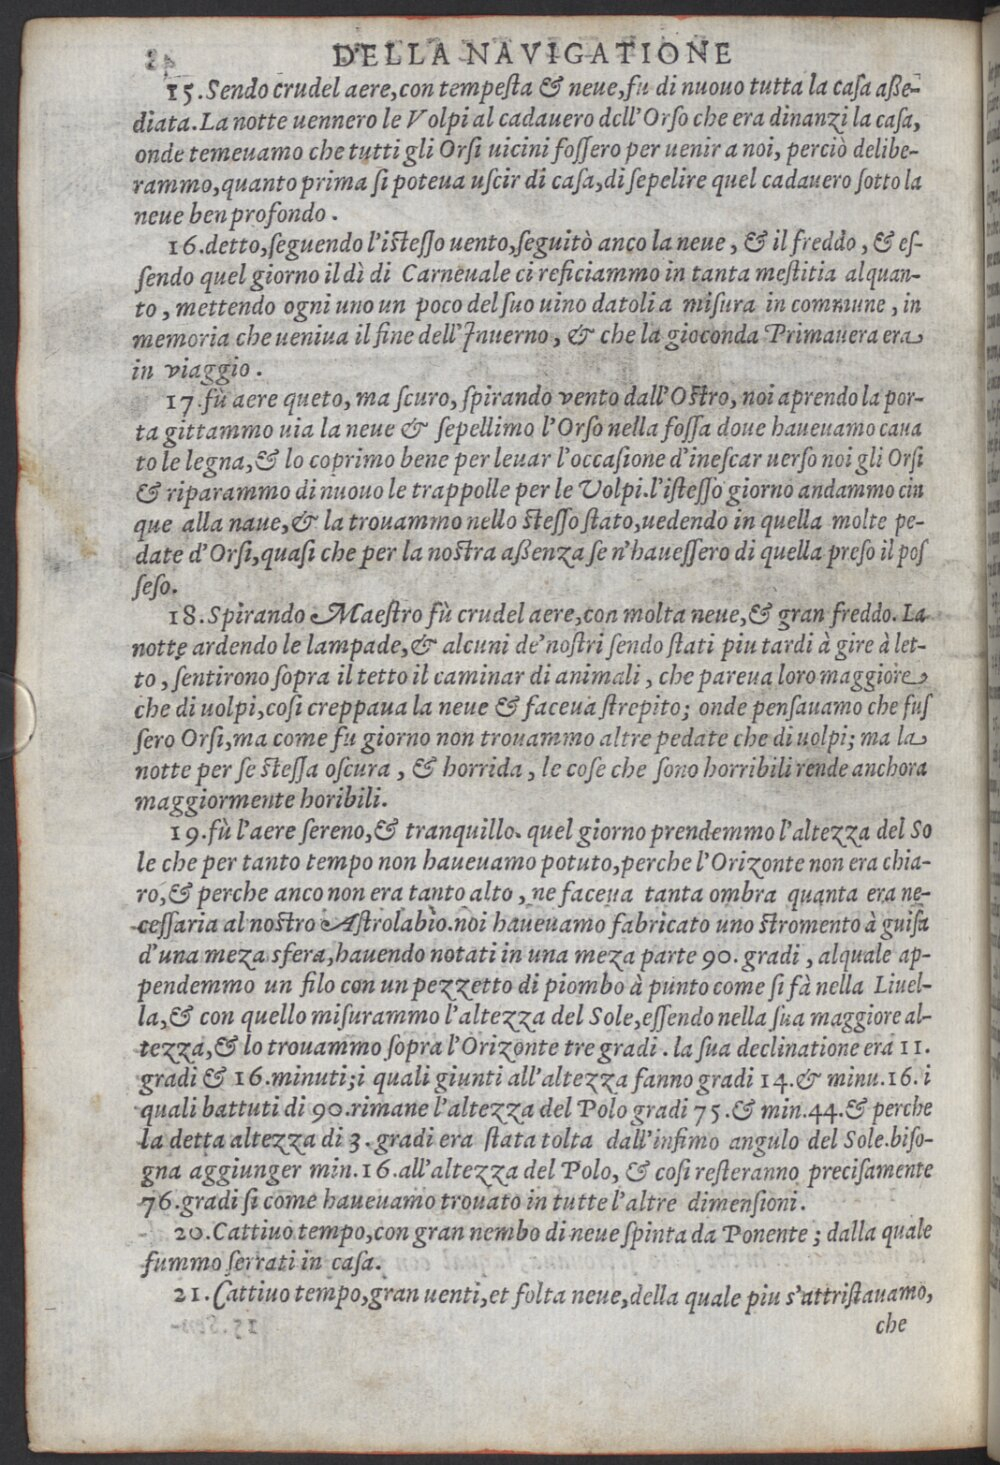 DELLA NAVIGATIONE
15.Sendo crudel aere,con tempesta & neue,fu di nuouo tutta la casa asse-
diata.La notte uennero le Volpi al cadauero dell'Orso che era dinanzi la casa,
onde temeuamo che tutti gli Orsi uicini fossero per uenir a noi, perciò delibe-
rammo,quanto prima si poteua uscir di casa,di sepelire quel cadauero sotto la
neue ben profondo.
16.detto,seguendo l'istesso uento,seguitò anco la neue, & il freddo, & es-
sendo quel giorno il dì di Carneuale ci reficiammo in tanta mestitia alquan-
to, mettendo ogni uno un poco del suo uino datoli a misura in commune, in
memoria che ueniua il fine dell'Inuerno, & che la gioconda Primauera era
in viaggio.
17.fù aere queto, ma scuro, spirando vento dall'Ostro, noi aprendo la por-
ta gittammo uia la neue & sepellimo l'Orso nella fossa doue haueuamo caua
to le legna,& lo coprimo bene per leuar l'occasione d'inescar uerso noi gli Orsi
& riparammo di nuouo le trappolle per le Volpi.l'istesso giorno andammo cin
que alla naue,& la trouammo nello stesso stato,uedendo in quella molte pe-
date d'Orsi,quasi che per la nostra assenza se n'hauessero di quella preso il pos
seso.
18.Spirando Maestro fù crudel aere,con molta neue,& gran freddo. La
notte ardendo le lampade,& alcuni de'nostri sendo stati piu tardi à gire à let-
to, sentirono sopra il tetto il caminar di animali, che pareua loro maggiore
che di uolpi,cosi creppaua la neue & faceua strepito; onde pensauamo che fus
sero Orsi,ma come fu giorno non trouammo altre pedate che di uolpi; ma la
notte per se stessa oscura, & horrida, le cose che sono horribili rende anchora
maggiormente horibili.
19.fù l'aere sereno,& tranquillo. quel giorno prendemmo l'altezza del So
le che per tanto tempo non haueuamo potuto,perche l'Orizonte non era chia-
ro,& perche anco non era tanto alto, ne faceua tanta ombra quanta era ne-
cessaria al nostro Astrolabio.noi haueuamo fabricato uno stromento à guisa
d'una meza sfera,hauendo notati in una meza parte 90. gradi, alquale ap-
pendemmo un filo con un pezzetto di piombo à punto come si fà nella Liuel-
la,& con quello misurammo l'altezza del Sole,essendo nella sua maggiore al-
tezza,& lo trouammo sopra l'Orizonte tre gradi. la sua declinatione era 11.
gradi & 16.minuti;i quali giunti all'altezza fanno gradi 14.& minu.16. i
quali battuti di 90.rimane l'altezza del Polo gradi 75.& min.44.& perche
la detta altezza di 3. gradi era stata tolta dall'infimo angulo del Sole.biso-
gna aggiunger min.16.all'altezza del Polo, & cosi resteranno precisamente
76.gradi si come haueuamo trouato in tutte l'altre dimensioni.
20.Cattiuo tempo,con gran nembo di neue spinta da Ponente; dalla quale
fummo serrati in casa.
21.Cattiuo tempo,gran uenti,et folta neue,della quale piu s'attristauamo,
che